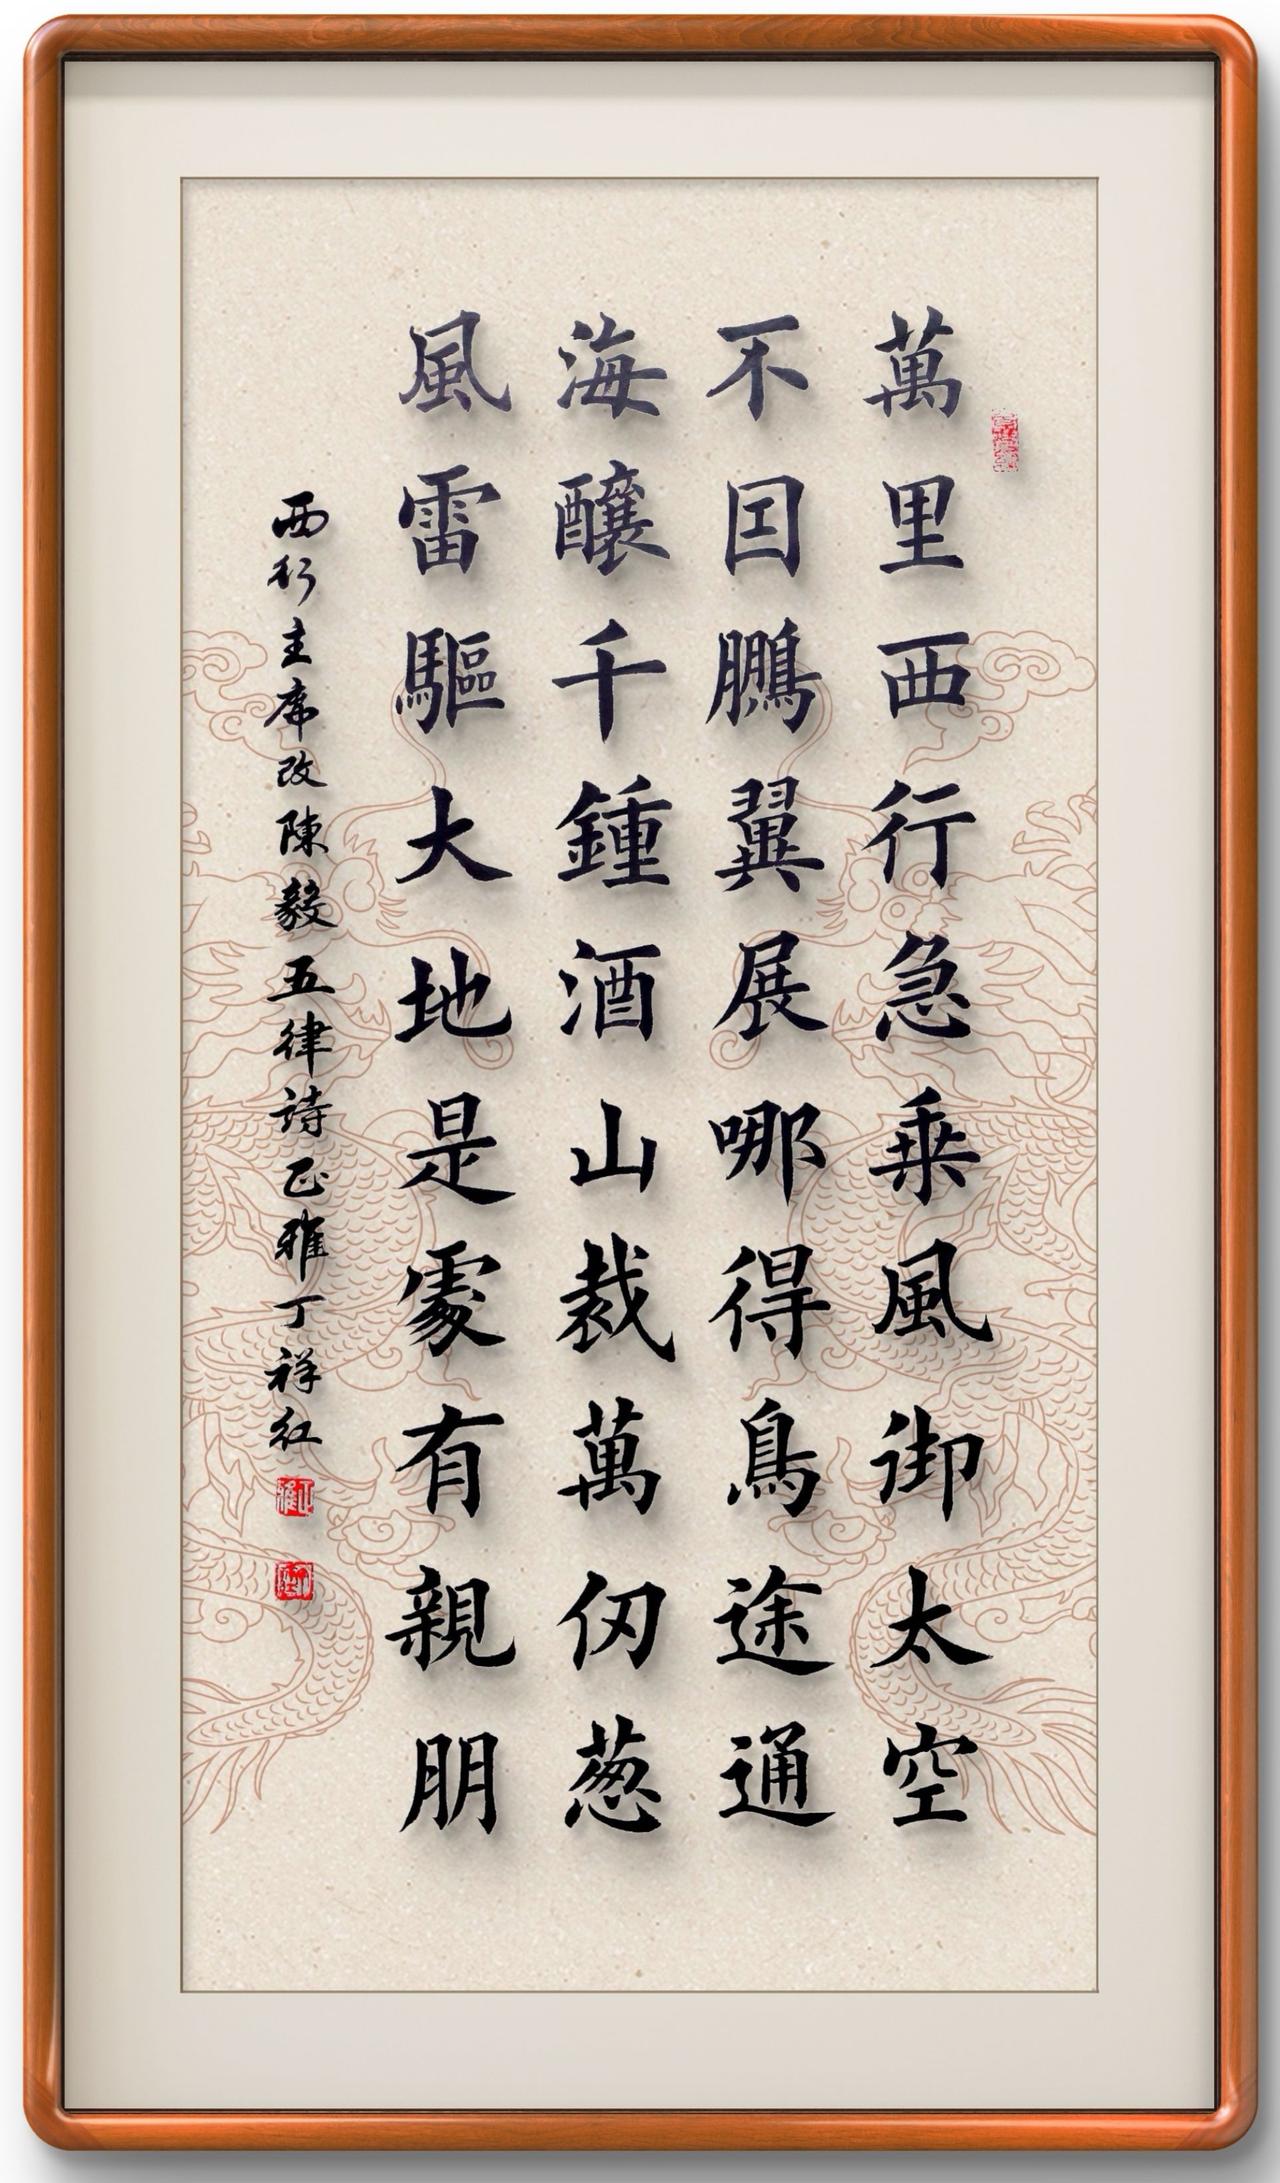 萬里西行急乗風御太空
不囙鵬翼展哪得鳥途通
海釀千鍾酒山裁萬仞葱
風雷驅大地是處有親朋
西行主席改陳毅五律詩正雅丁祥紅